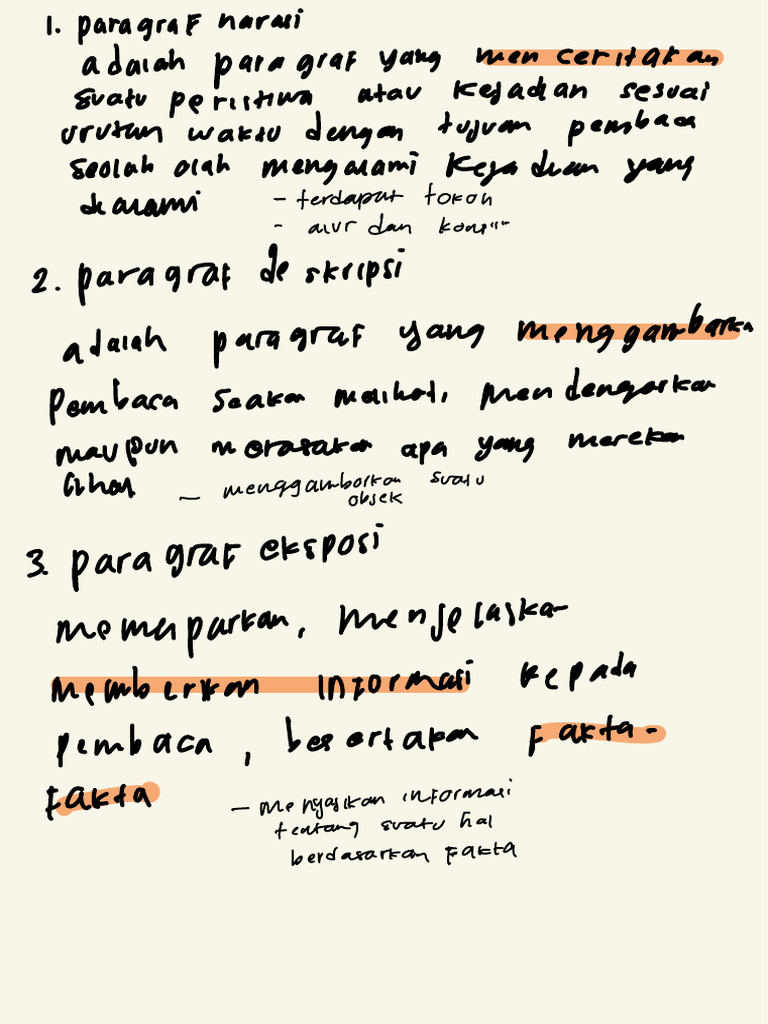 1. paragraf narasi
adalah paragraf yang menceritakan
suatu peristiwa atau kejadian sesuai
urutan waktu dengan tujuan pembaca
seolah olah mengalami kejadian yang
dialami
- terdapat tokoh
- alur dan
2. paragraf deskripsi
adalah paragraf yang menggambarkan
Pembaca seakan melihat, mendengarkan
maupun merasakan apa yang merekan
lihat
- menggambarkan suatu
objek
3. paragraf eksposi
memaparkan, menjelaska
memberikan informasi kepada
pembaca, besertakan fakta-
fakta
- menyajikan informasi
tentang suatu hal
berdasarkan fakta